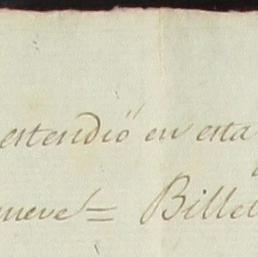 estendió en esta
nueve = Billet